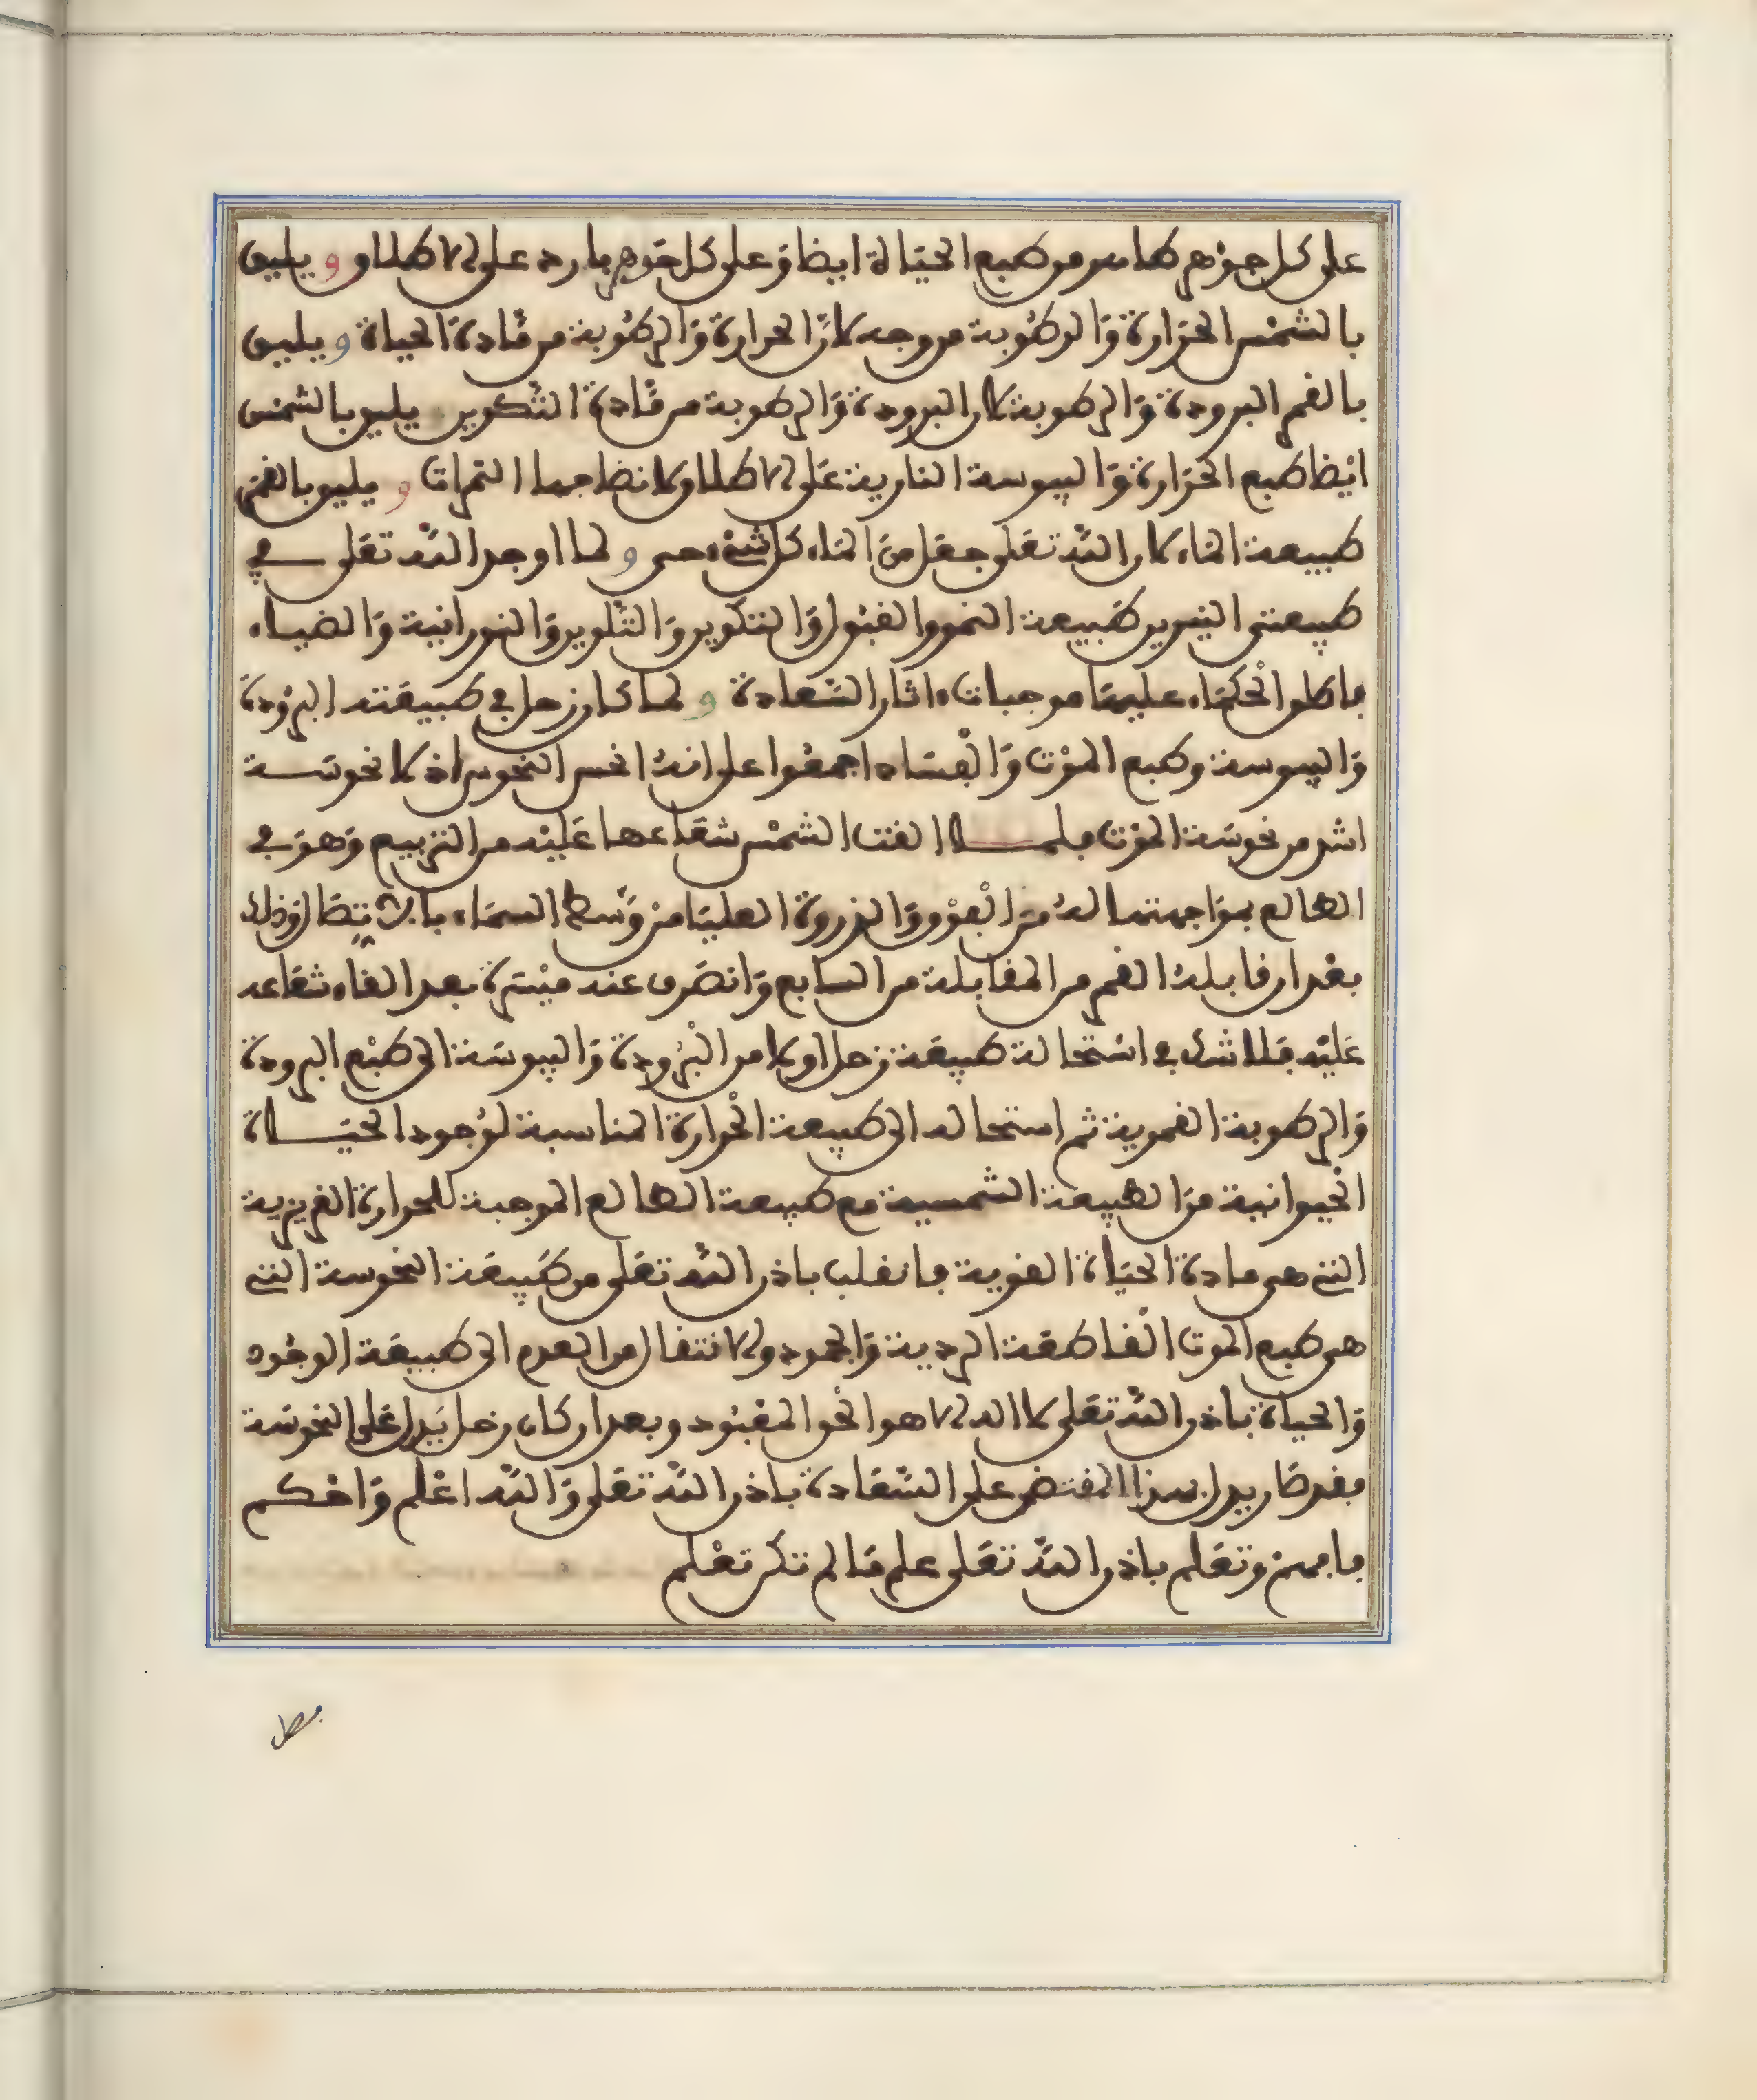 على كل جوهر كما هو من طبع الحياة ايضا وعلى كل جوهر بارد على الاطلاق ويليق
بالشمس الحرارة والرطوبة من وجه لان الحرارة والرطوبة من مادة الحياة ويليق
بالقمر البرودة والرطوبة لان البرودة والرطوبة من مادة التكوين يليق بالشمس
ايضا طبع الحرارة واليبوسة النارية على الاطلاق ولانضاجها الثمرات ويليق بالقمر
طبيعة الماء لان الله تعلى جعل من الماء كل شيء حي ولما اوجد الله تعلى في
طبيعتي النيرين طبيعة النمو والقبول والتكوين والتلوين والنورانية والضياء
فاطلق الحكماء عليهما موجبات ءاثار السعادة ولما كان زحل في طبيعته البرودة
واليبوسة وطبع الموت والفساد اجمعوا على انه انحس النحوس اذ لا نحوسة
اشد من نحوسة الموت فلما القت الشمس شعاعها عليه من التربيع وهو في
الطالع بمواجهتها له من الفوق والذروة العليا من وسط السماء بالاتصال وذلك
بعد ان قابله القمر من المقابلة من السابع وانصرف عند ميسرة بعد القاء شعاعه
عليه فلا شك في استحالة طبيعة زحل اولا من البرودة واليبوسة الى طبع البرودة
والرطوبة القمرية ثم استحاله الى طبيعة الحرارة المناسبة لوجود الحياة
الحيوانية من الطبيعة الشمسية مع طبيعة الطالع الموجبة للحرارة الغريزية
التي هي مادة الحياة القوية فانقلب باذن الله تعلى من طبيعة النحوسة التي
هي طبع الموت القاطعة الردية والجمود والانتقال من العدم الى طبيعة الوجود
والحياة باذن الله تعلى لا اله الا هو الحق المعبود وبعد ان كان زحل يدل على النحوسة
فقد صار يدل بهذا المقتضى على السعادة باذن الله تعلى والله اعلم واحكم
فافهم وتعلم باذن الله تعلى علم ما لم تكن تعلم
فصل